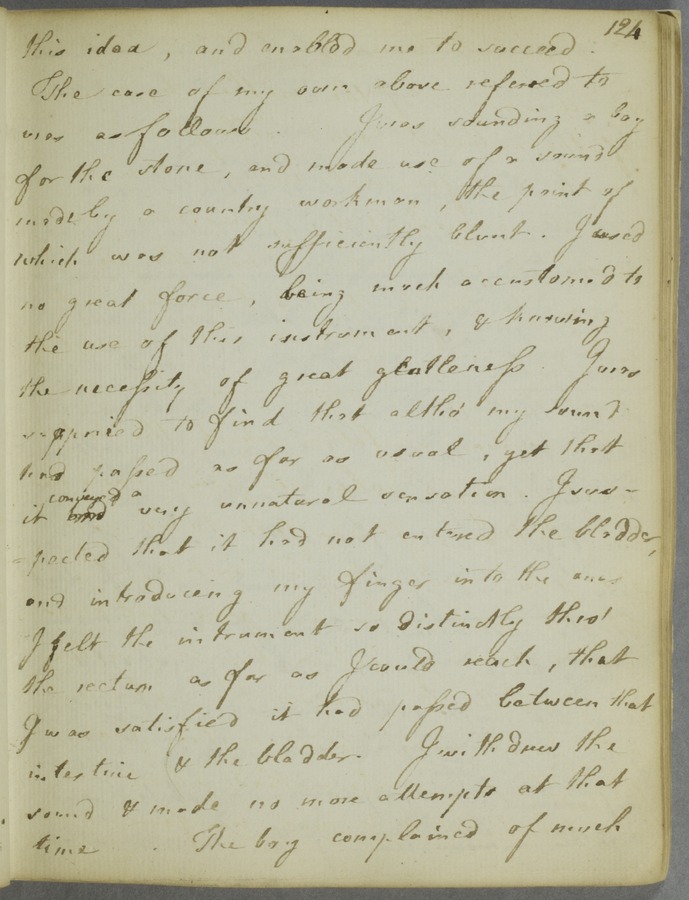 124
this idea, and enabled me to succeed.
The case of my own above referred to
was as follows. I was sounding a boy
for the stone, and made use of a sound
made by a country workman, the point of
which was not sufficiently blunt. I used
no great force, being much accustomed to
the use of this instrument, & knowing
the necessity of great gentleness. I was
surprised to find that altho' my sound
had passed as far as usual, yet that
conveyed a
it very unnatural sensation. I sus-
-pected that it had not entered the bladder,
and introduceing my finger into the anus
I felt the intrument so distinctly thro'
the rectum as far as I could reach, that
I was satisfied it had passed between that
intestine & the bladder. I withdrew the
sound & made no more attempts at that
time. The boy complained of much